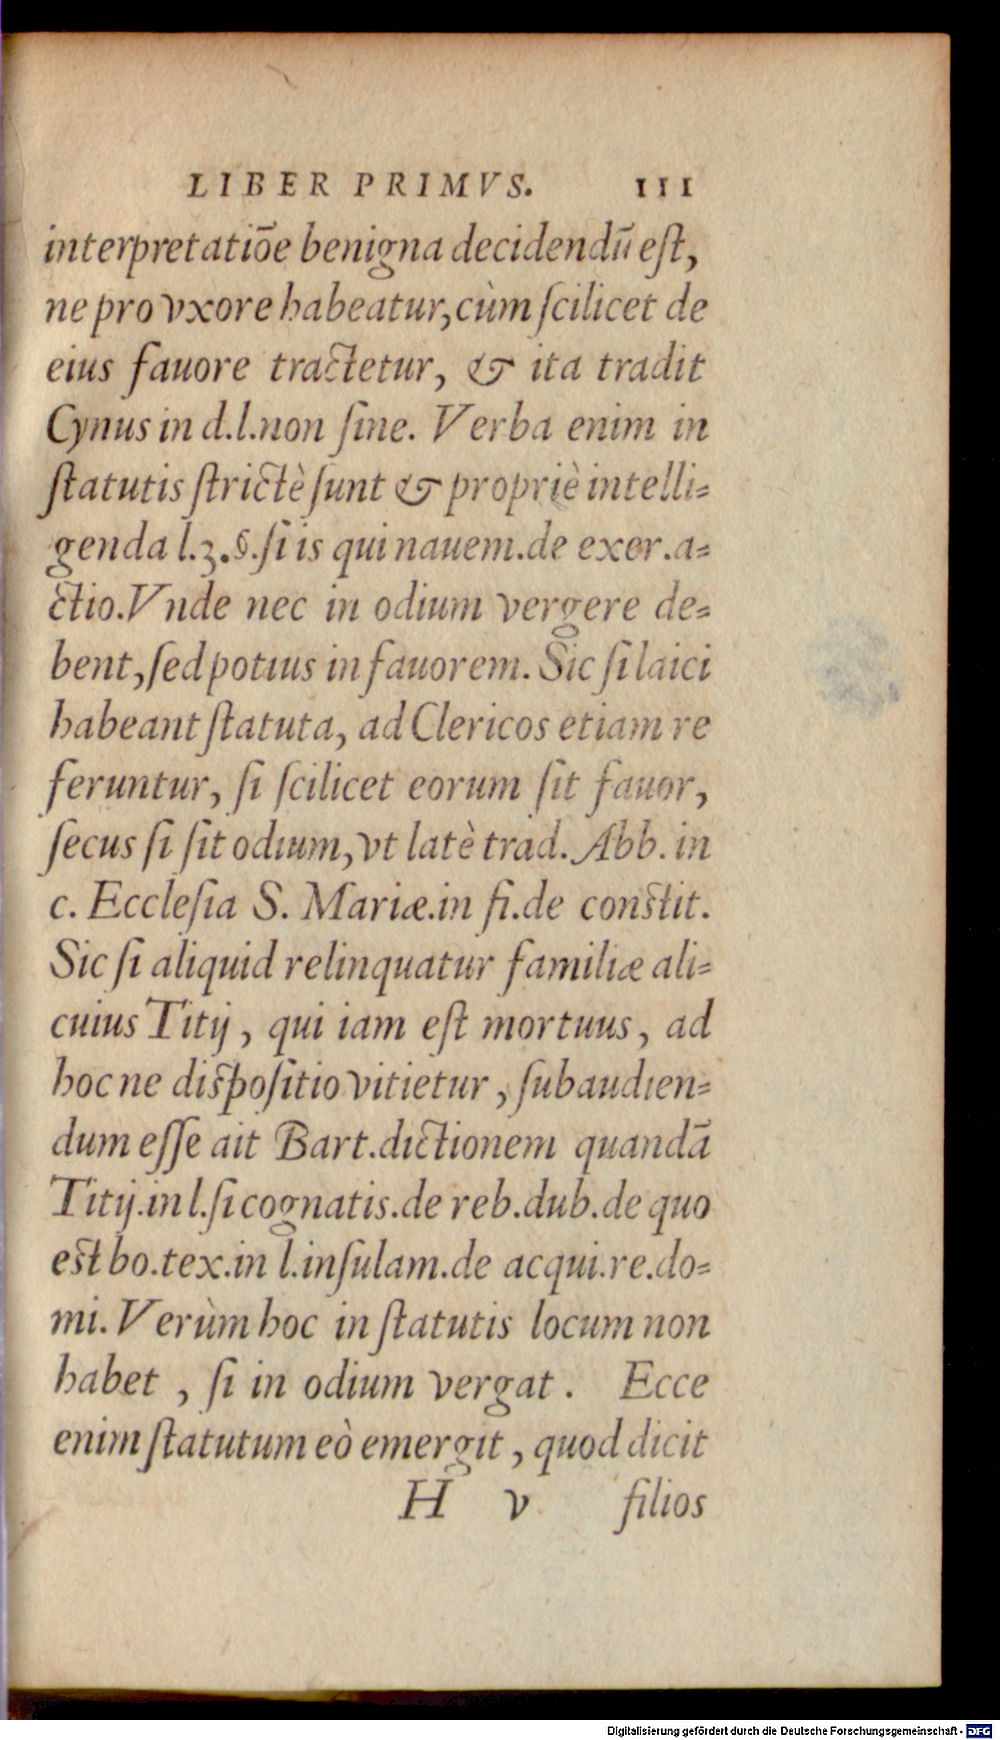 LIBER PRIMVS. 111
interpretatiōe benigna decidendū eſt,
ne pro vxore habeatur, cùm ſcilicet de
eius fauore tractetur, & ita tradit
Cynus in d.l.non ſine. Verba enim in
ſtatutis ſtrictè ſunt & propriè intelli-
genda l.3.§.ſi is qui nauem.de exer.a-
ctio.Vnde nec in odium vergere de-
bent, ſed potius in fauorem. Sic ſi laici
habeant ſtatuta, ad Clericos etiam re
feruntur, ſi ſcilicet eorum ſit fauor,
ſecus ſi ſit odium, vt latè trad. Abb. in
c. Eccleſia S. Mariæ.in fi.de conſtit.
Sic ſi aliquid relinquatur familiæ ali-
cuius Titij, qui iam eſt mortuus, ad
hoc ne diſpoſitio vitietur, ſubaudien-
dum eſſe ait Bart.dictionem quandā
Titij.in l.ſi cognatis.de reb.dub.de quo
eſt bo.tex.in l.inſulam.de acqui.re.do-
mi. Verùm hoc in ſtatutis locum non
habet, ſi in odium vergat. Ecce
enim ſtatutum eò emergit, quod dicit
H v filios
Digitalisierung gefördert durch die Deutsche Forschungsgemeinschaft - DFG